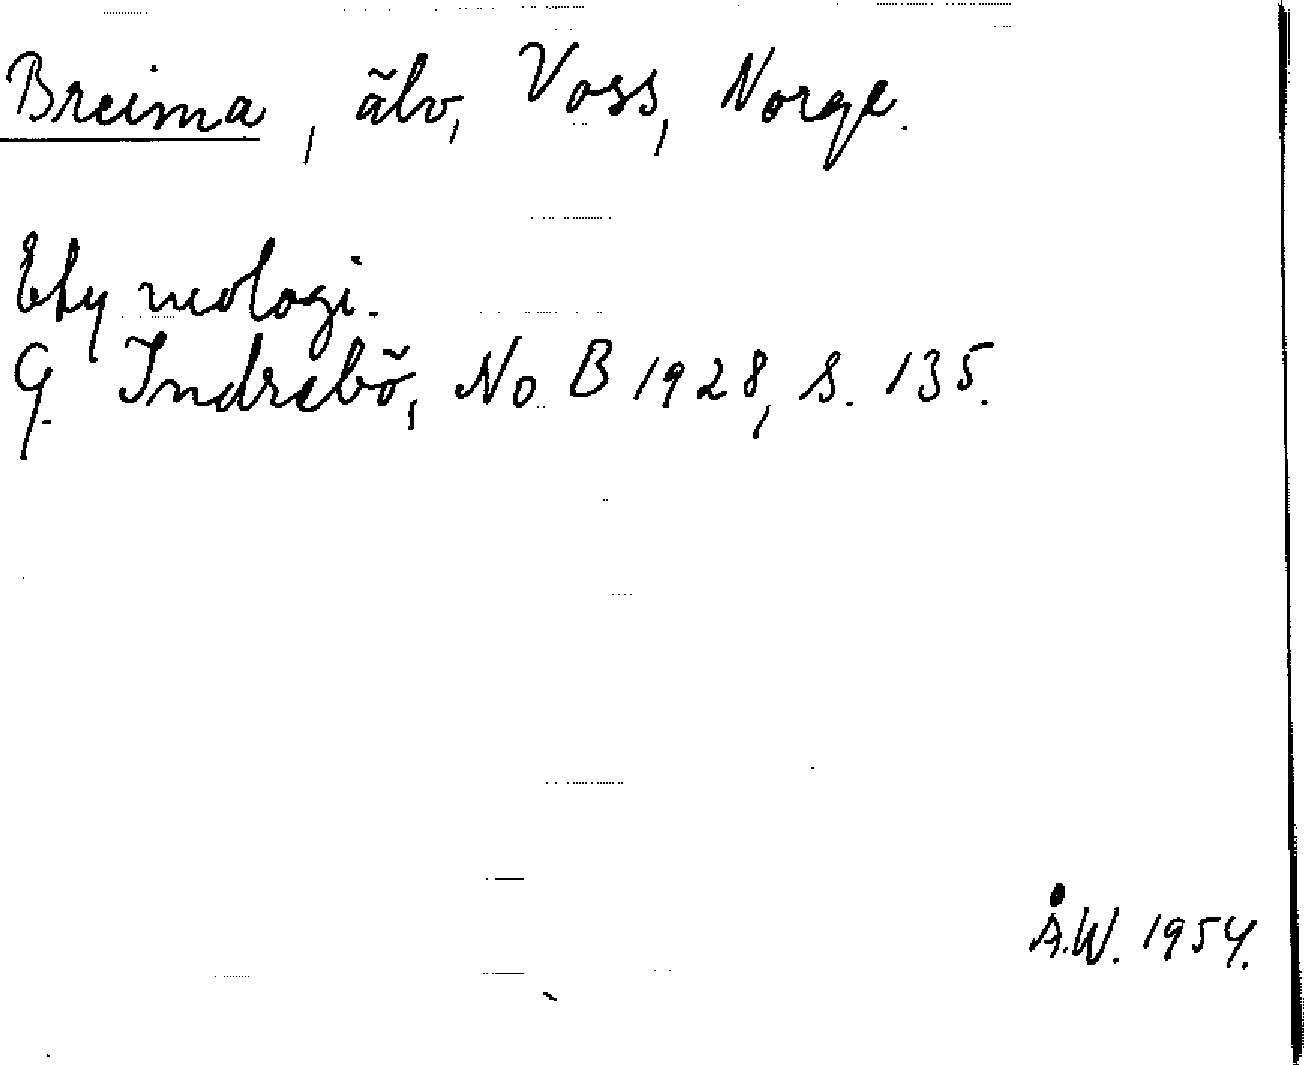 Breima, älv, Voss, Norge.
Etymologi.
G. Indrebö, No B 1928, s. 135.
Å.W. 1954.